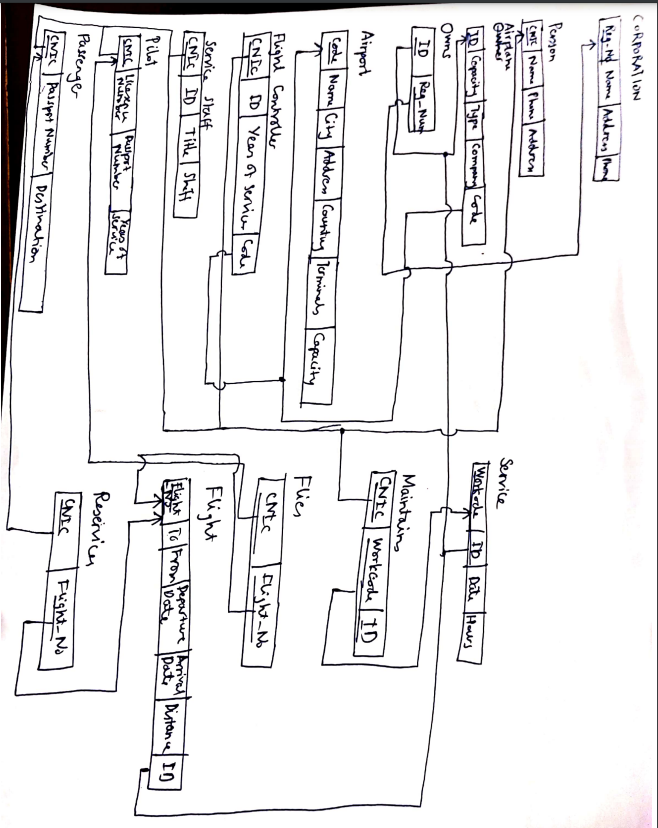 CORPORATION
Reg-No Name Address Phone
Person
CNIC Name Phone Address
Airplane
ID Capacity Type Company Code
Owns
ID Reg_Num
Airport
Code Name City Address Country Terminals Capacity
Flight Controller
CNIC ID Years of Service Code
Service Staff
CNIC ID Title Shift
Pilot
CNIC License Number Passport Number Years of Service
Passenger
CNIC Passport Number Destination
Service
Workcode ID Date Hours
Maintains
CNIC Workcode ID
Flies
CNIC Flight-No
Flight
Flight No To From Departure Date Arrival Date Distance ID
CNIC Flight-No